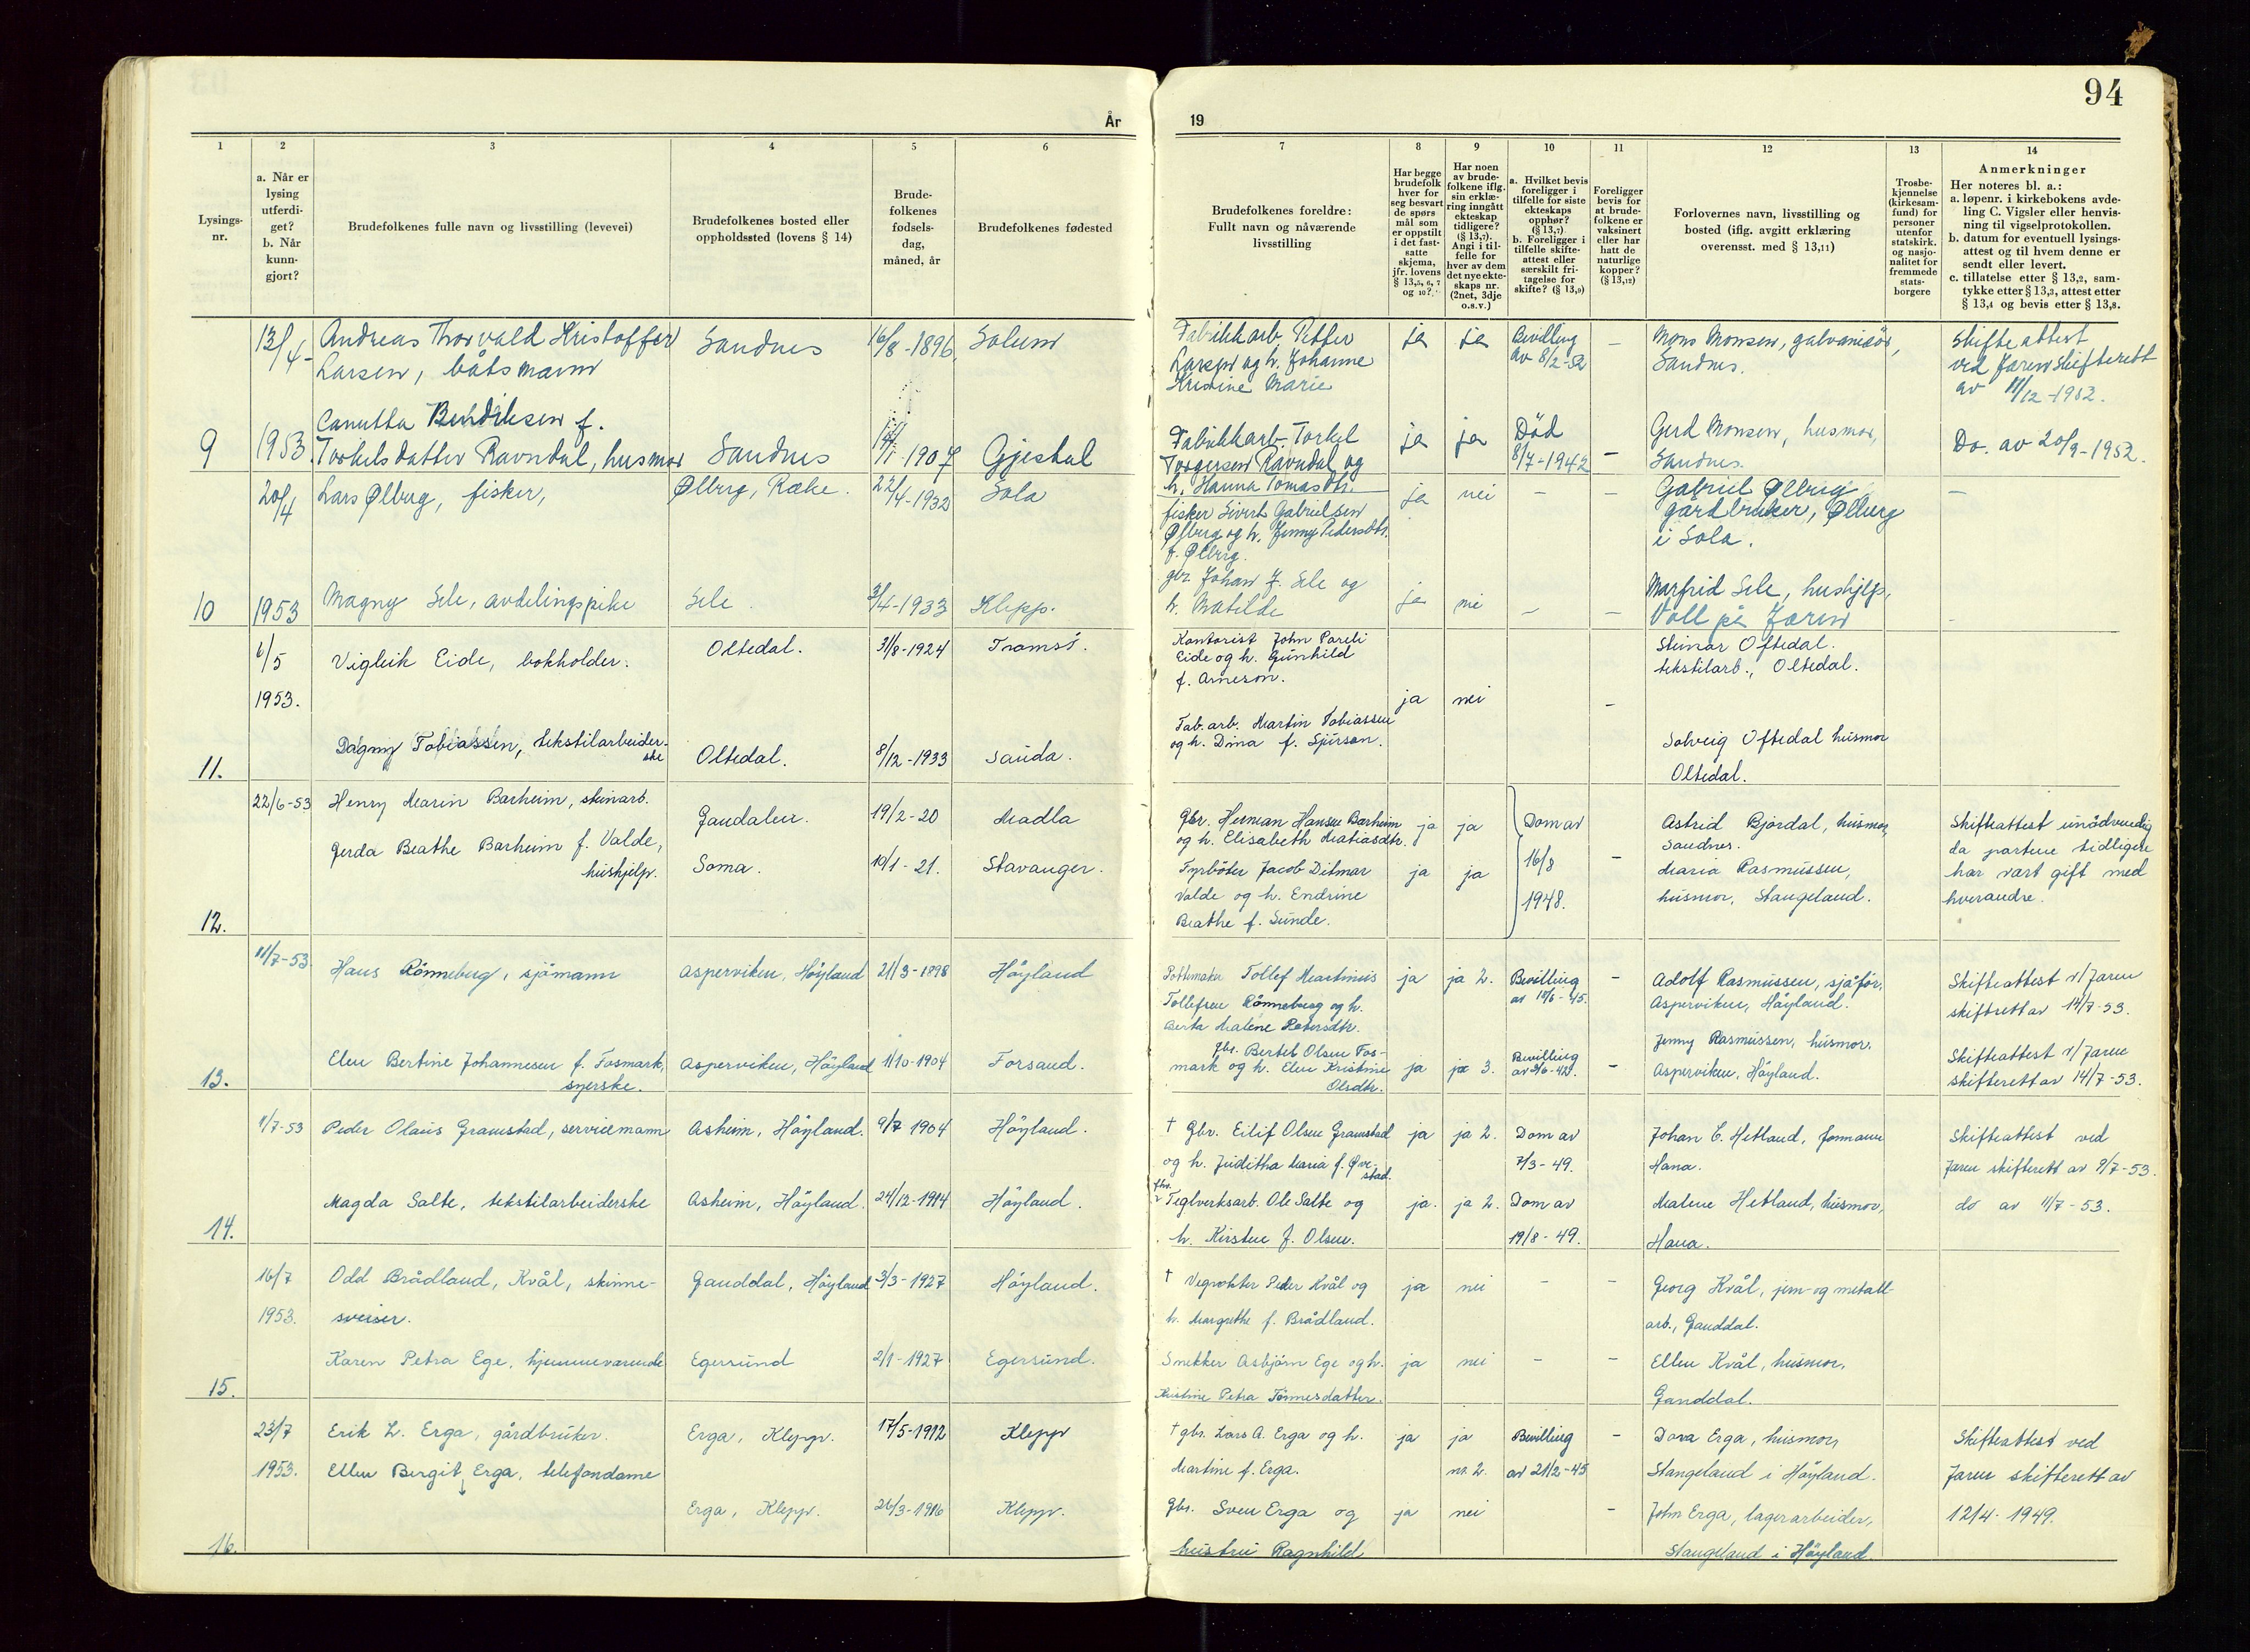 94
År
19
1
2
3
4
5
6
7
8
9
10
11
12
13
14
Lysings-
nr.
a. Når er
lysing
utferdi-
get?
b. Når
kunn-
gjort?
Brudefolkenes fulle navn og livsstilling (levevei)
Brudefolkenes bosted eller
oppholdssted (lovens § 14)
Brude-
folkenes
fødsels-
dag,
måned, år
Brudefolkenes fødested
Brudefolkenes foreldre:
Fullt navn og nåværende
livsstilling
Har begge
brudefolk
hver for
seg besvart
de spørs
mål som
er oppstilt
i det fast-
satte
skjema,
jfr. lovens
§ 13,5, 6, 7
og 10?
Har noen
av brude-
folkene iflg.
sin erklæ-
ring inngått
ekteskap
tidligere?
(§ 13,7).
Angi i til-
felle for
hver av dem
det nye ekte-
skaps nr.
(2net, 3dje
o.s.v.)
a. Hvilket bevis
foreligger i
tilfelle for siste
ekteskaps
opphør?
(§ 13,7)
b. Foreligger i
tilfelle skifte-
attest eller
særskilt fri-
tagelse for
skifte? (§ 13,9)
Foreligger
bevis for
at brude-
folkene er
vaksinert
eller har
hatt de
naturlige
kopper?
(§ 13,12)
Forlovernes navn, livsstilling og
bosted (iflg. avgitt erklæring
overensst. med § 13,11)
Trosbe-
kjennelse
(kirkesam-
fund) for
personer
utenfor
statskirk.
og nasjo-
nalitet for
fremmede
stats-
borgere
Anmerkninger
Her noteres bl. a.:
a. løpenr. i kirkebokens avde-
ling C. Vigsler eller henvis-
ning til vigselprotokollen.
b. datum for eventuell lysings-
attest og til hvem denne er
sendt eller levert.
c. tillatelse etter § 13,2, sam-
tykke etter § 13,3, attest etter
§ 13,4 og bevis etter § 13,8.
13/4-
Andreas Thorvald Kristoffer
Larsen, båtsmann
Sandnes
16/8-1896
Solum
Fabrikkarb. Petter
Larsen og h. Johanne
Kristine Marie
ja
ja
Bevilling
av 8/2-52
–
Mons Monsen, galvanisör,
Sandnes.
Skifteattest
ved Jæren Skifterett
av 11/12-1952.
9
1953.
Canutta Bendiksen f.
Torkelsdatter Ravndal, husmor
Sandnes
14/1-1907
Gjestal
Fabrikkarb. Torkel
Torgersen Ravndal og
h. Hanna Tomasdtr.
ja
ja
Död
8/7-1942
–
Gerd Monsen, husmor,
Sandnes.
Do. av 20/9-1952.
20/4
Lars Ølberg, fisker,
Ølberg, Ræke.
22/4-1932
Sola
fisker Sivert Gabrielsen
Ølberg og h. Jenny Pedersdtr.
f. Ølberg.
ja
nei
–
–
Gabriel Ølberg
gårdbruker, Ølberg
i Sola.
–
10
1953
Magny Sele, avdelingspike
Sele.
3/4-1933
Klepp.
gbr. Johan J. Sele og
h. Matilde
ja
nei
–
–
Marfrid Sele, hushjelp,
Voll på Jæren
6/5
1953.
Vigleik Eide, bokholder.
Oltedal.
31/8-1924
Tromsö.
Kontorist John Pareli
Eide og h. Gunhild
f. Arneson.
ja
nei
–
Steinar Oftedal.
tekstilarb., Oltedal.
11.
Dagny Tobiassen, tekstilarbeider-
ske
Oltedal.
8/12-1933
Sauda.
Fab.arb. Martin Tobiassen
og h. Dina f. Sjurson.
Solveig Oftedal husmor
Oltedal.
22/6-53
Henry Marin Barheim, steinarb.
Gandalen.
19/2-20
Madla
Gbr. Herman Hansen Barheim
og h. Elisabeth Matiasdtr.
ja
ja
Dom av
16/8
1948.
–
Astrid Bjordal, husmor,
Sandnes.
Skifteattest unödvendig
da partene tidligere
har vært gift med
hverandre.
Gerda Beathe Barheim f. Valde,
hushjelp.
Soma.
10/1-21.
Stavanger.
Fyrböter Jacob Ditmar
Valde og h. Endrine
Beathe f. Sunde.
ja
ja
Maria Rasmussen,
husmor, Stangeland.
12.
11/7-53.
Hans Rönneberg, sjömann
Asperviken, Höyland
21/3-1898
Höyland
Pottemaker Tollef Martinius
Tollefsen Rönneberg og h.
Berta Malene Petersdtr.
ja
ja 2.
Bevilling
av 12/6-45.
–
Adolf Rasmussen, sjåför,
Asperviken, Höyland.
Skifteattest v/Jæren
skifterett av 14/7-53.
13.
Elen Bertine Johannesen f. Fosmark,
syerske.
Asperviken, Höyland
1/10-1904
Forsand.
gbr. Bertel Olsen Fos-
mark og h. Elen Kristine
Olsdtr.
ja
ja 3.
Bevilling
av 3/6-42.
–
Jenny Rasmussen, husmor.
Asperviken, Höyland.
Skifteattest v/Jæren
skifterett av 14/7-53.
11/7-53
Peder Olaus Gramstad, servicemann
Asheim, Höyland.
9/7 1904
Höyland.
† Gbr. Eilif Olsen Gramstad
og h. Juditha Maria f. Øve-
stad.
ja
ja 2.
Dom av
7/3-49.
Johan C. Hetland, formann
Hana.
Skifteattest ved
Jæren skifterett av 9/7-53.
14.
Magda Salte, tekstilarbeiderske
Asheim, Höyland.
24/12-1914
Höyland.
Teglverksarb. Ole Salte og
h. Kirsten f. Olsen.
ja.
ja 2.
Dom av
19/8-49.
Malene Hetland, husmor,
Hana.
do av 11/7-53.
16/7
1953.
Odd Brådland, Kvål, skinne-
sveiser.
Ganddal, Höyland
3/3-1927
Höyland.
† Vegvokter Peder Kvål og
h. Margrethe f. Brådland.
ja
nei
–
–
Georg Kvål, jern- og metall-
arb., Ganddal.
15.
Karen Petra Ege, hjemmeværende
Egersund
2/1-1927
Egersund.
Snekker Asbjörn Ege og h.
Kristine Petra Tönnesdatter.
ja
nei
–
–
Ellen Kvål, husmor,
Ganddal.
23/7
1953.
Erik L. Erga, gårdbruker.
Erga, Klepp.
17/5-1912
Klepp
† gbr. Lars A. Erga og h.
Martine f. Erga.
ja
ja
nr. 2.
Bevilling
av 21/2-45
–
Dora Erga, husmor,
Stangeland i Höyland.
Skifteattest ved
Jæren skifterett av
12/4-1949.
16.
Ellen Bergit Erga, telefondame
Erga, Klepp.
26/3-1916
Klepp.
Gbr. Sven Erga og
hustru Ragnhild
ja
nei
–
John Erga, lagerarbeider,
Stangeland i Höyland.